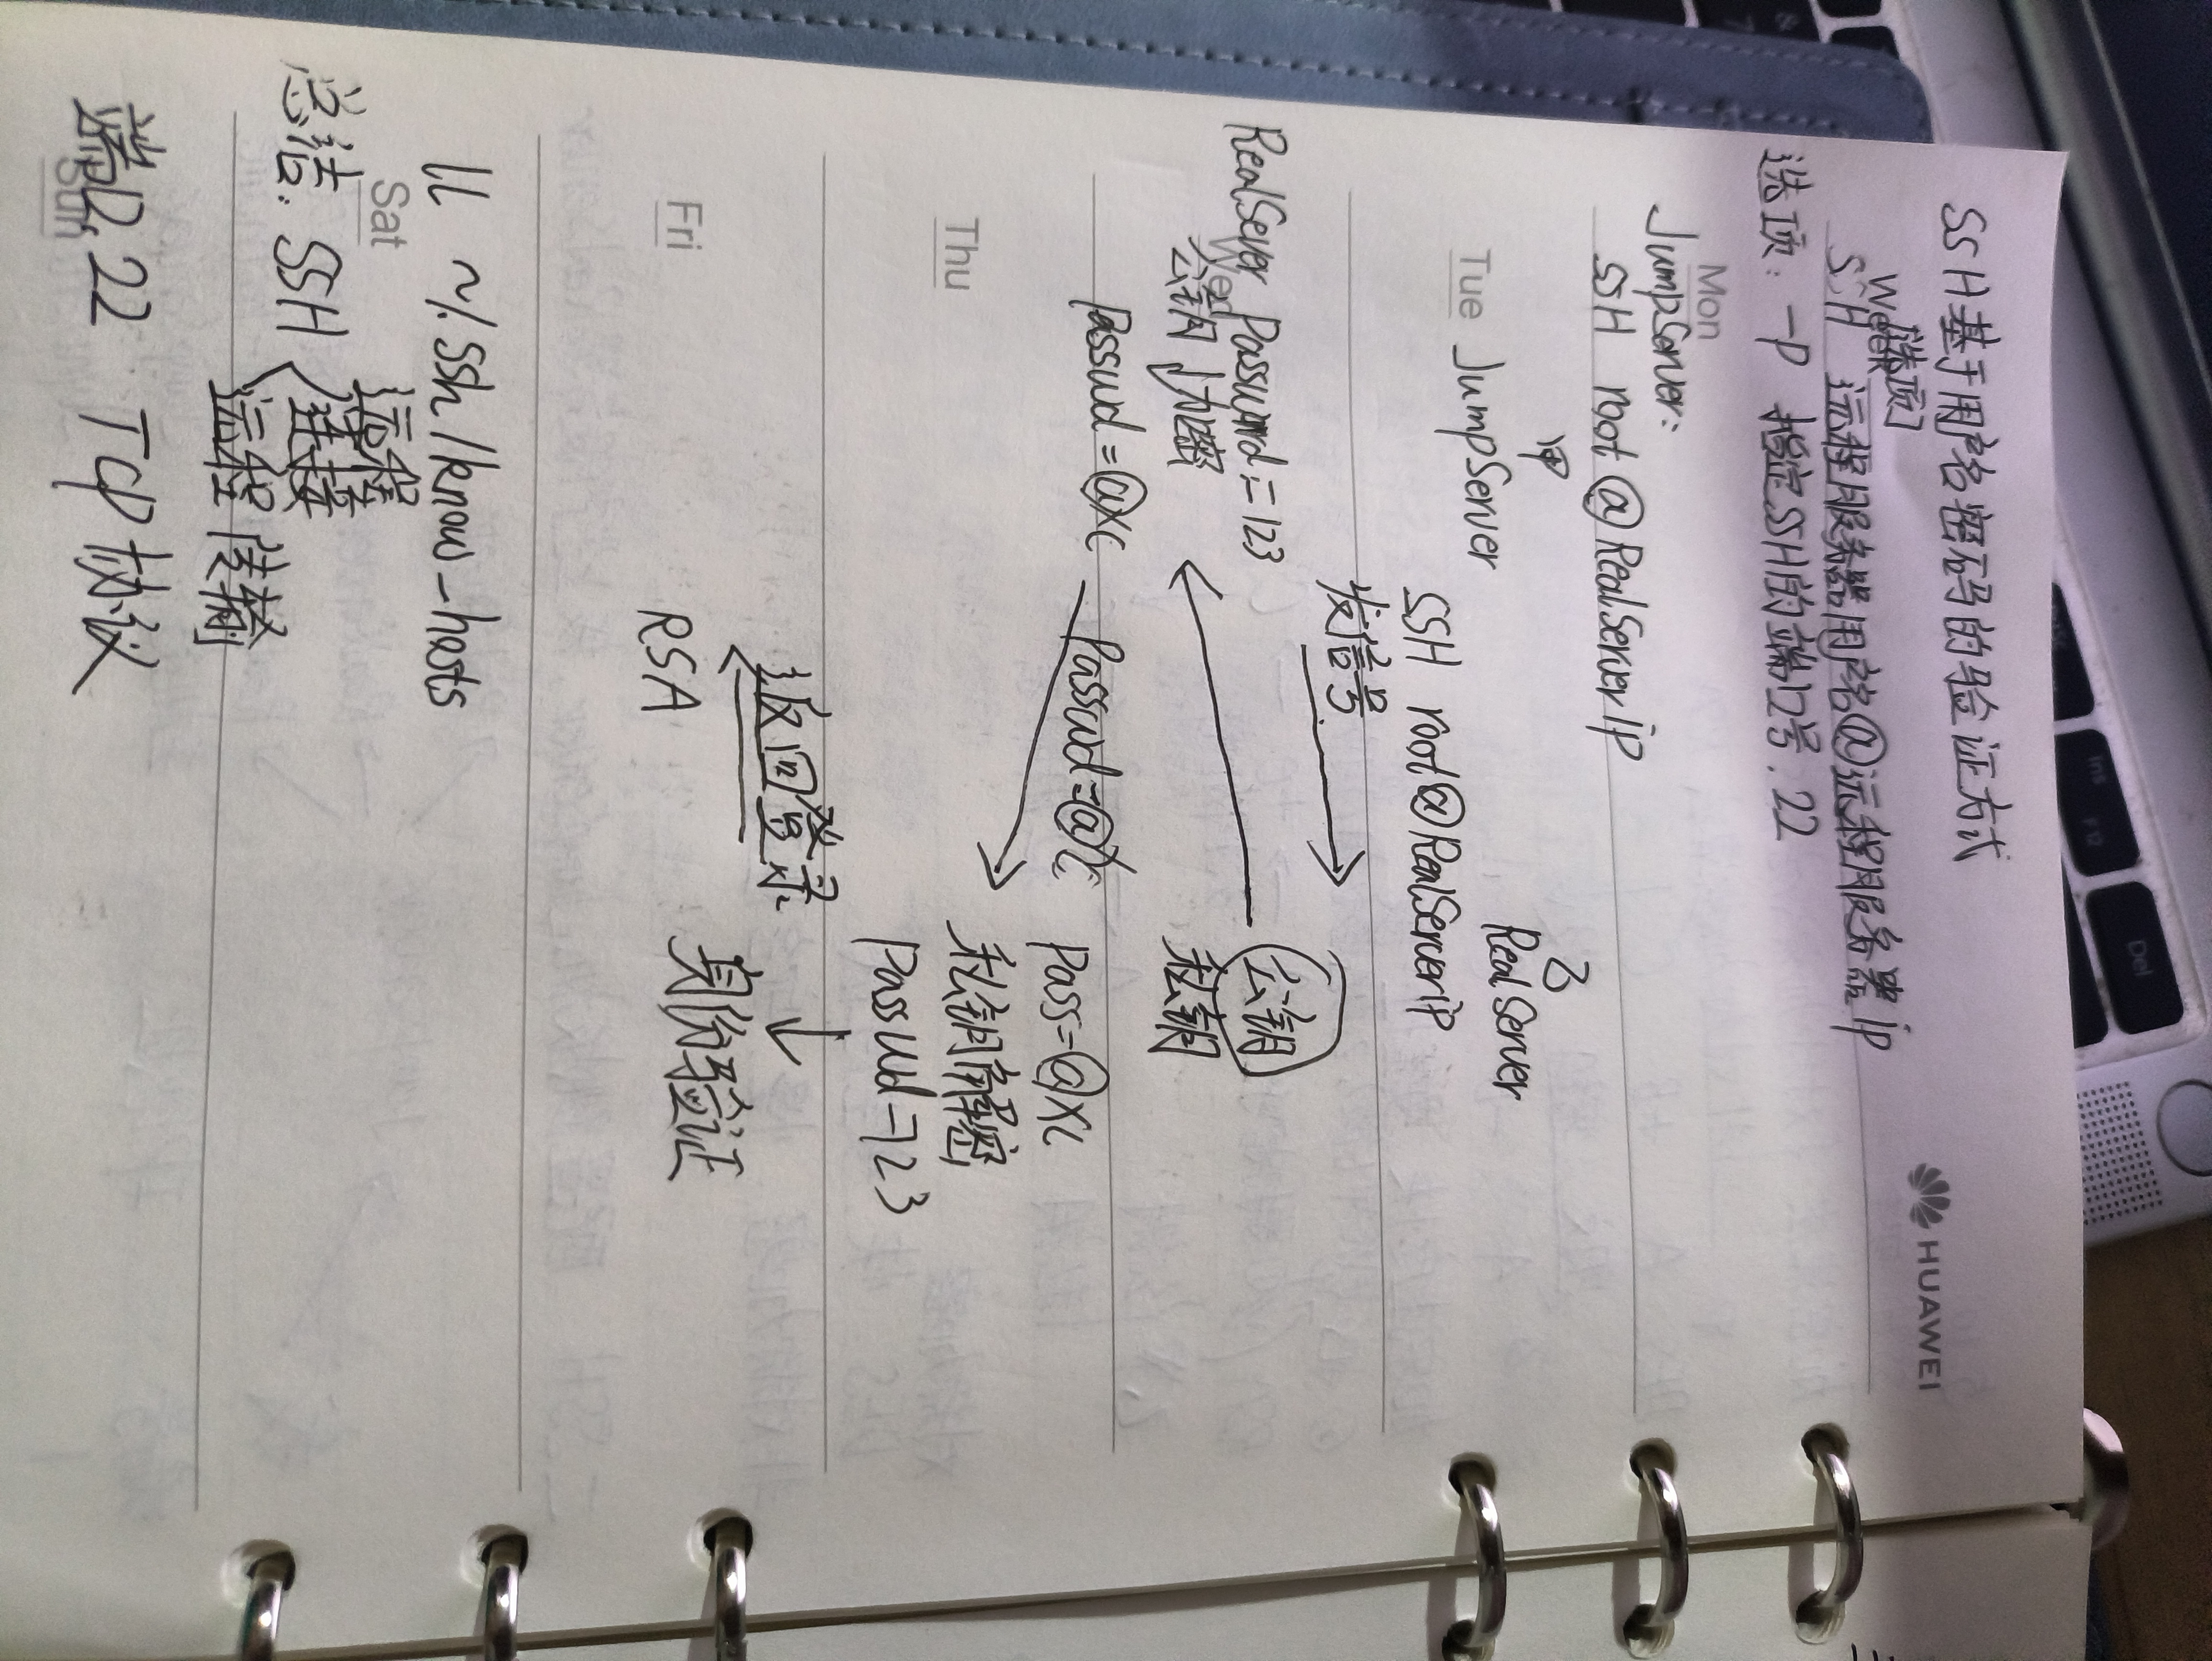 SSH基于用户名密码的验证方式
HUAWEI
Week
[选项]
SSH 远程服务器用户名@远程服务器ip
选项: -p 指定SSH的端口号.22
Mon
JumpServer:
SSH root @ RealServer ip
Tue
JumpServer
RealServer
SSH root@RealServer ip
发信号
RealSever Passwrd:=123
公钥
Wed
公钥 加密
私钥
Passwd=@xc
Passwd=@xc
Pass=@xc
Thu
私钥解密
Passwd=123
返回登录
Fri
RSA
身份验证
ll ~/.ssh/know_hosts
Sat
远程
总结: SSH
连接
远程传输
Sun
端口22 TCP协议
Ins
F12
Del